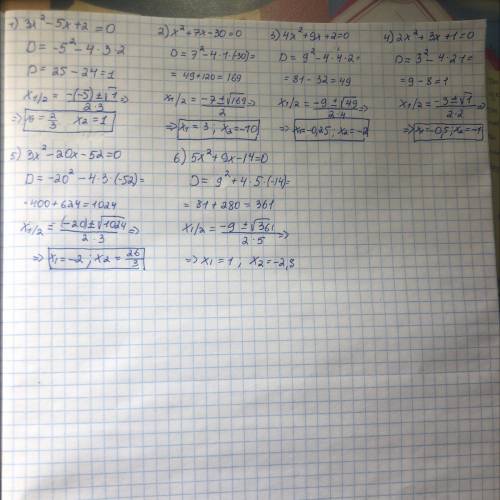 1) 3x²-5x+2=0
D = -5²-4·3·2
D = 25-24=1
x₁/₂ = -(-5)±√1 / 2·3 ⇒
⇒ x₁ = 2/3 x₂ = 1
2) x²+7x-30=0
D = 7²-4·1·(-30)=
= 49+120=169
x₁/₂ = -7±√169 / 2 ⇒
⇒ x₁ = 3, x₂=-10
3) 4x²+9x+2=0
D = 9²-4·4·2=
= 81-32=49
x₁/₂ = -9±√49 / 2·4 ⇒
⇒ x₁=-0,25; x₂=-2
4) 2x²+3x+1=0
D = 3²-4·2·1=
= 9-8=1
x₁/₂ = -3±√1 / 2·2 ⇒
⇒ x₁=-0,5; x₂=-1
5) 3x²-20x-52=0
D = -20²-4·3·(-52)=
=400+624=1024
x₁/₂ = (-20)±√1024 / 2·3 ⇒
⇒ x₁=-2; x₂ = 26/3
6) 5x²+9x-14=0
D = 9²+4·5·(-14)=
= 81+280=361
x₁/₂ = -9±√361 / 2·5 ⇒
⇒ x₁ = 1; x₂=-2,8